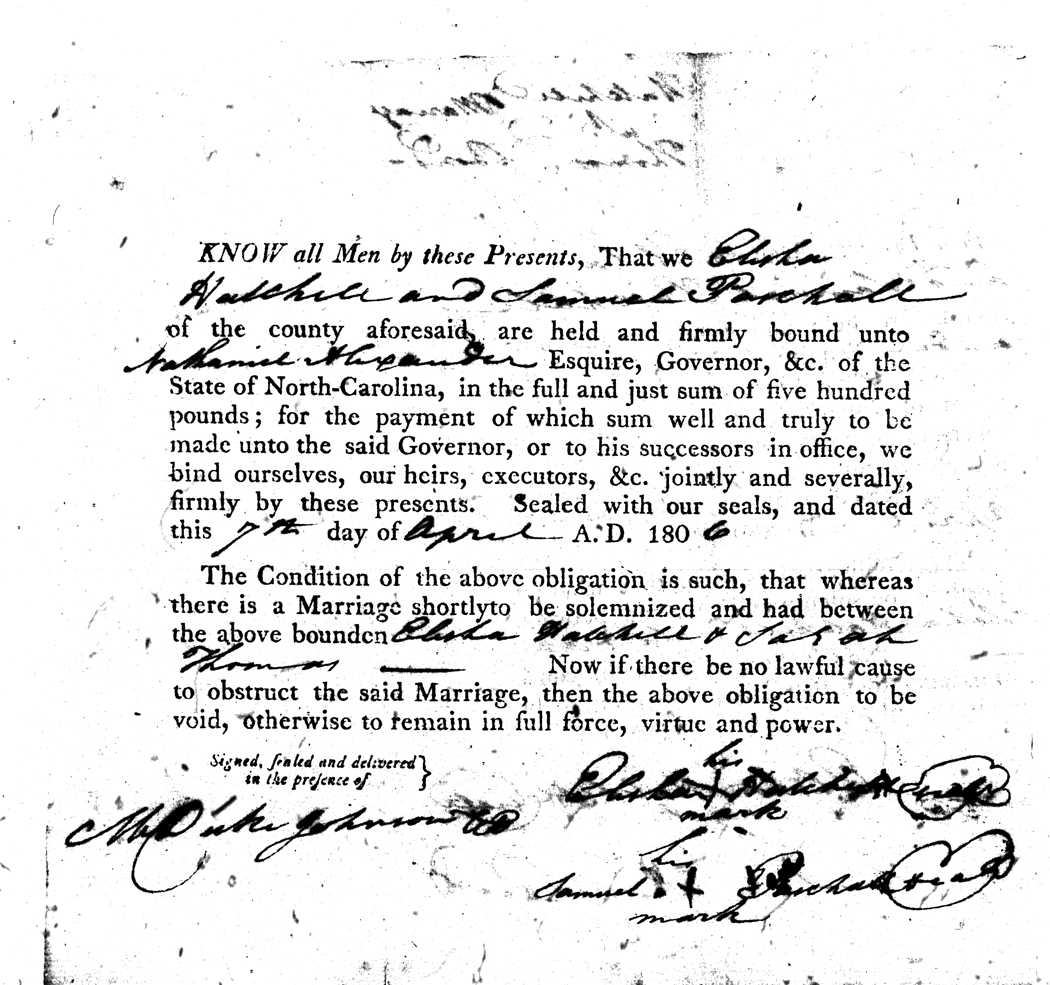 KNOW all Men by these Presents, That we Elisha
Hatchell and Samuel Paschall
of the county aforesaid, are held and firmly bound unto
Nathaniel Alexander Esquire, Governor, &c. of the
State of North-Carolina, in the full and just sum of five hundred
pounds; for the payment of which sum well and truly to be
made unto the said Governor, or to his successors in office, we
bind ourselves, our heirs, executors, &c. jointly and severally,
firmly by these presents. Sealed with our seals, and dated
this 7th day of April A. D. 1806
The Condition of the above obligation is such, that whereas
there is a Marriage shortlyto be solemnized and had between
the above bounden Elisha Hatchell & Sarah
Thomas — Now if there be no lawful cause
to obstruct the said Marriage, then the above obligation to be
void, otherwise to remain in full force, virtue and power.
Signed, sealed and delivered }
in the presence of
his
Elisha + Hatchell seal
mark
M Duke Johnson
his
Samuel + Paschall seal
mark